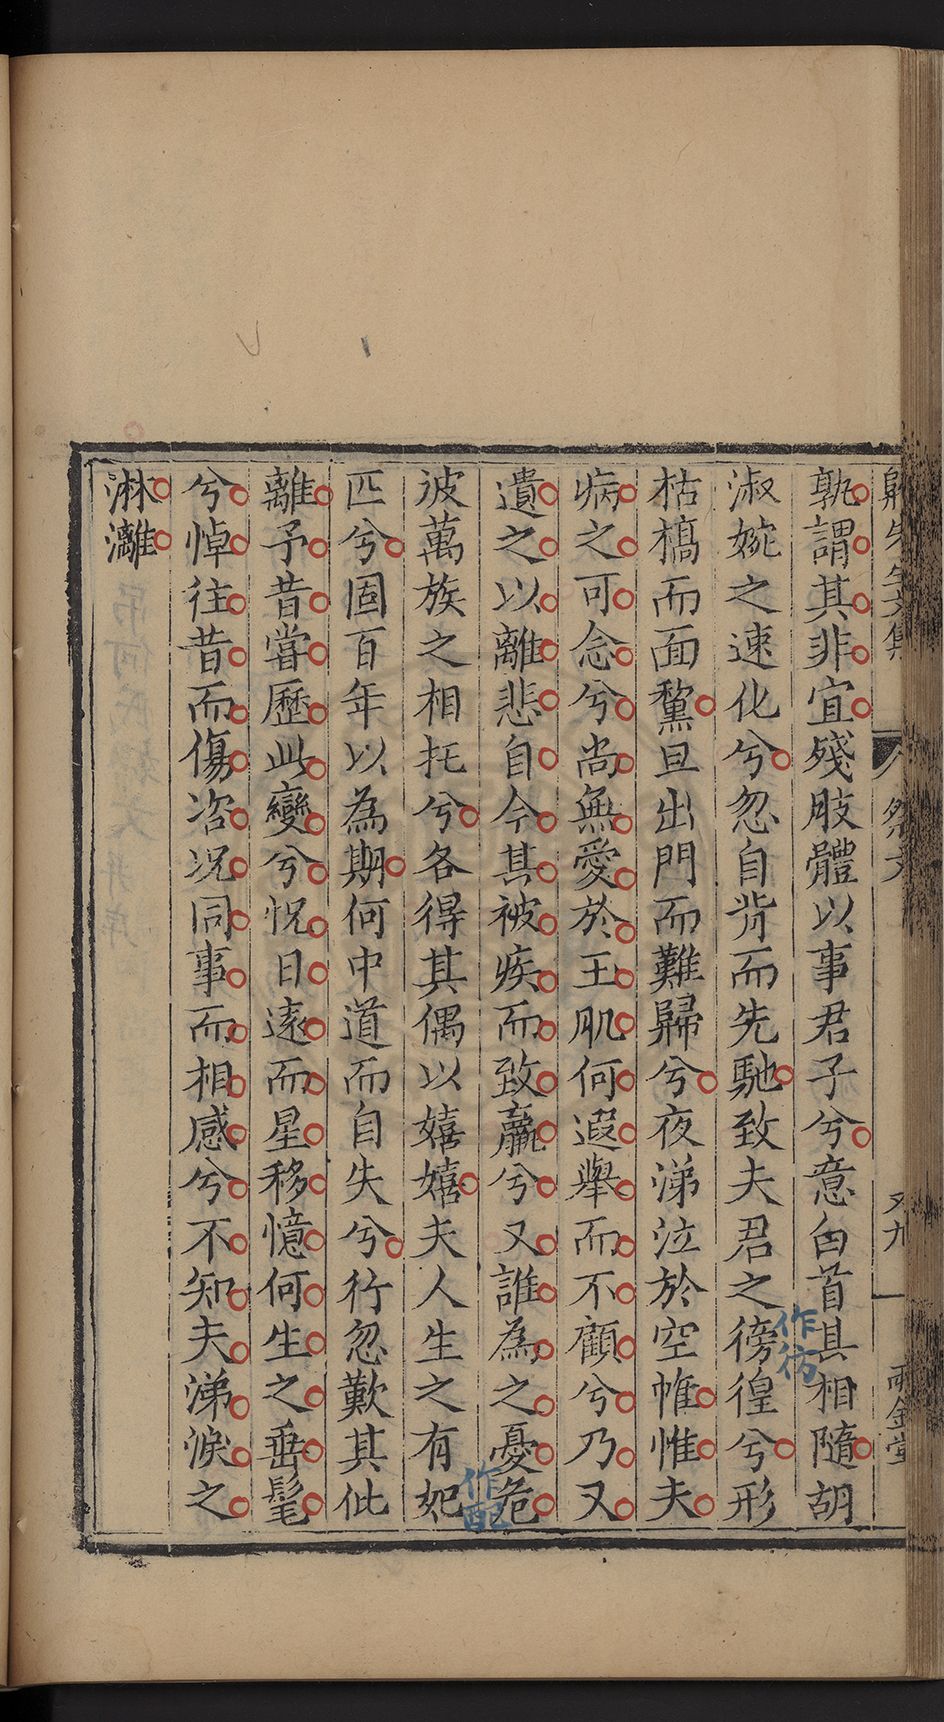 歸先生文集
祭文
兩金堂
孰謂其非宜殘肢體以事君子兮意白首其相隨胡
淑婉之速化兮忽自背而先馳致夫君之徬徨兮形
作彷
枯槁而面黧旦出門而難歸兮夜涕泣於空帷惟夫
病之可念兮尚無愛於玉肌何遐舉而不顧兮乃又
遺之以離悲自今其被疾而致羸兮又誰為之憂危
彼萬族之相托兮各得其偶以嬉嬉夫人生之有妃
作配
匹兮固百年以為期何中道而自失兮行忽歎其仳
離予昔嘗歷此變兮怳日遠而星移憶何生之垂髦
兮悼往昔而傷咨况同事而相感兮不知夫涕淚之
淋灕